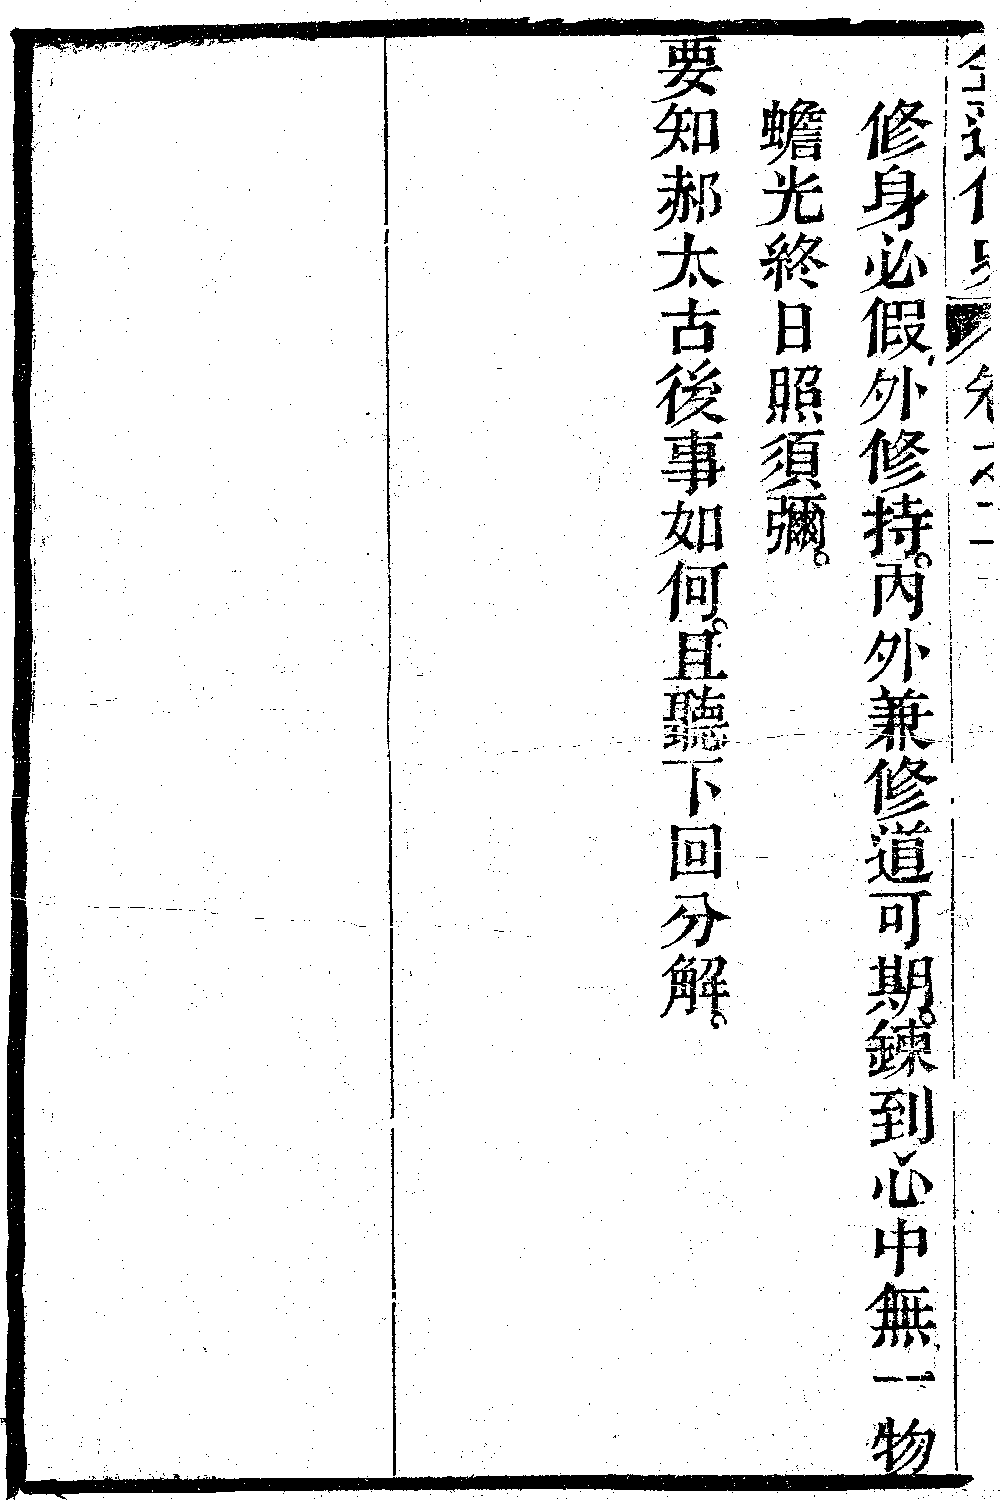 修身必假外修持。內外兼修道可期。鍊到心中無一物
蟾光終日照須彌。
要知郝太古後事如何。且聽下回分解。